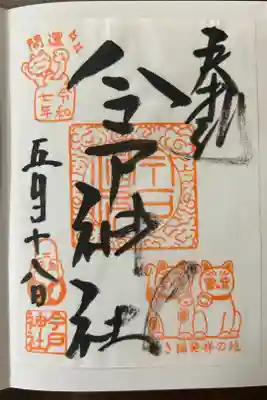 奉拝
開運
令和
七年
今戸神社
五月十八日
今戸
神社
き猫発祥の地